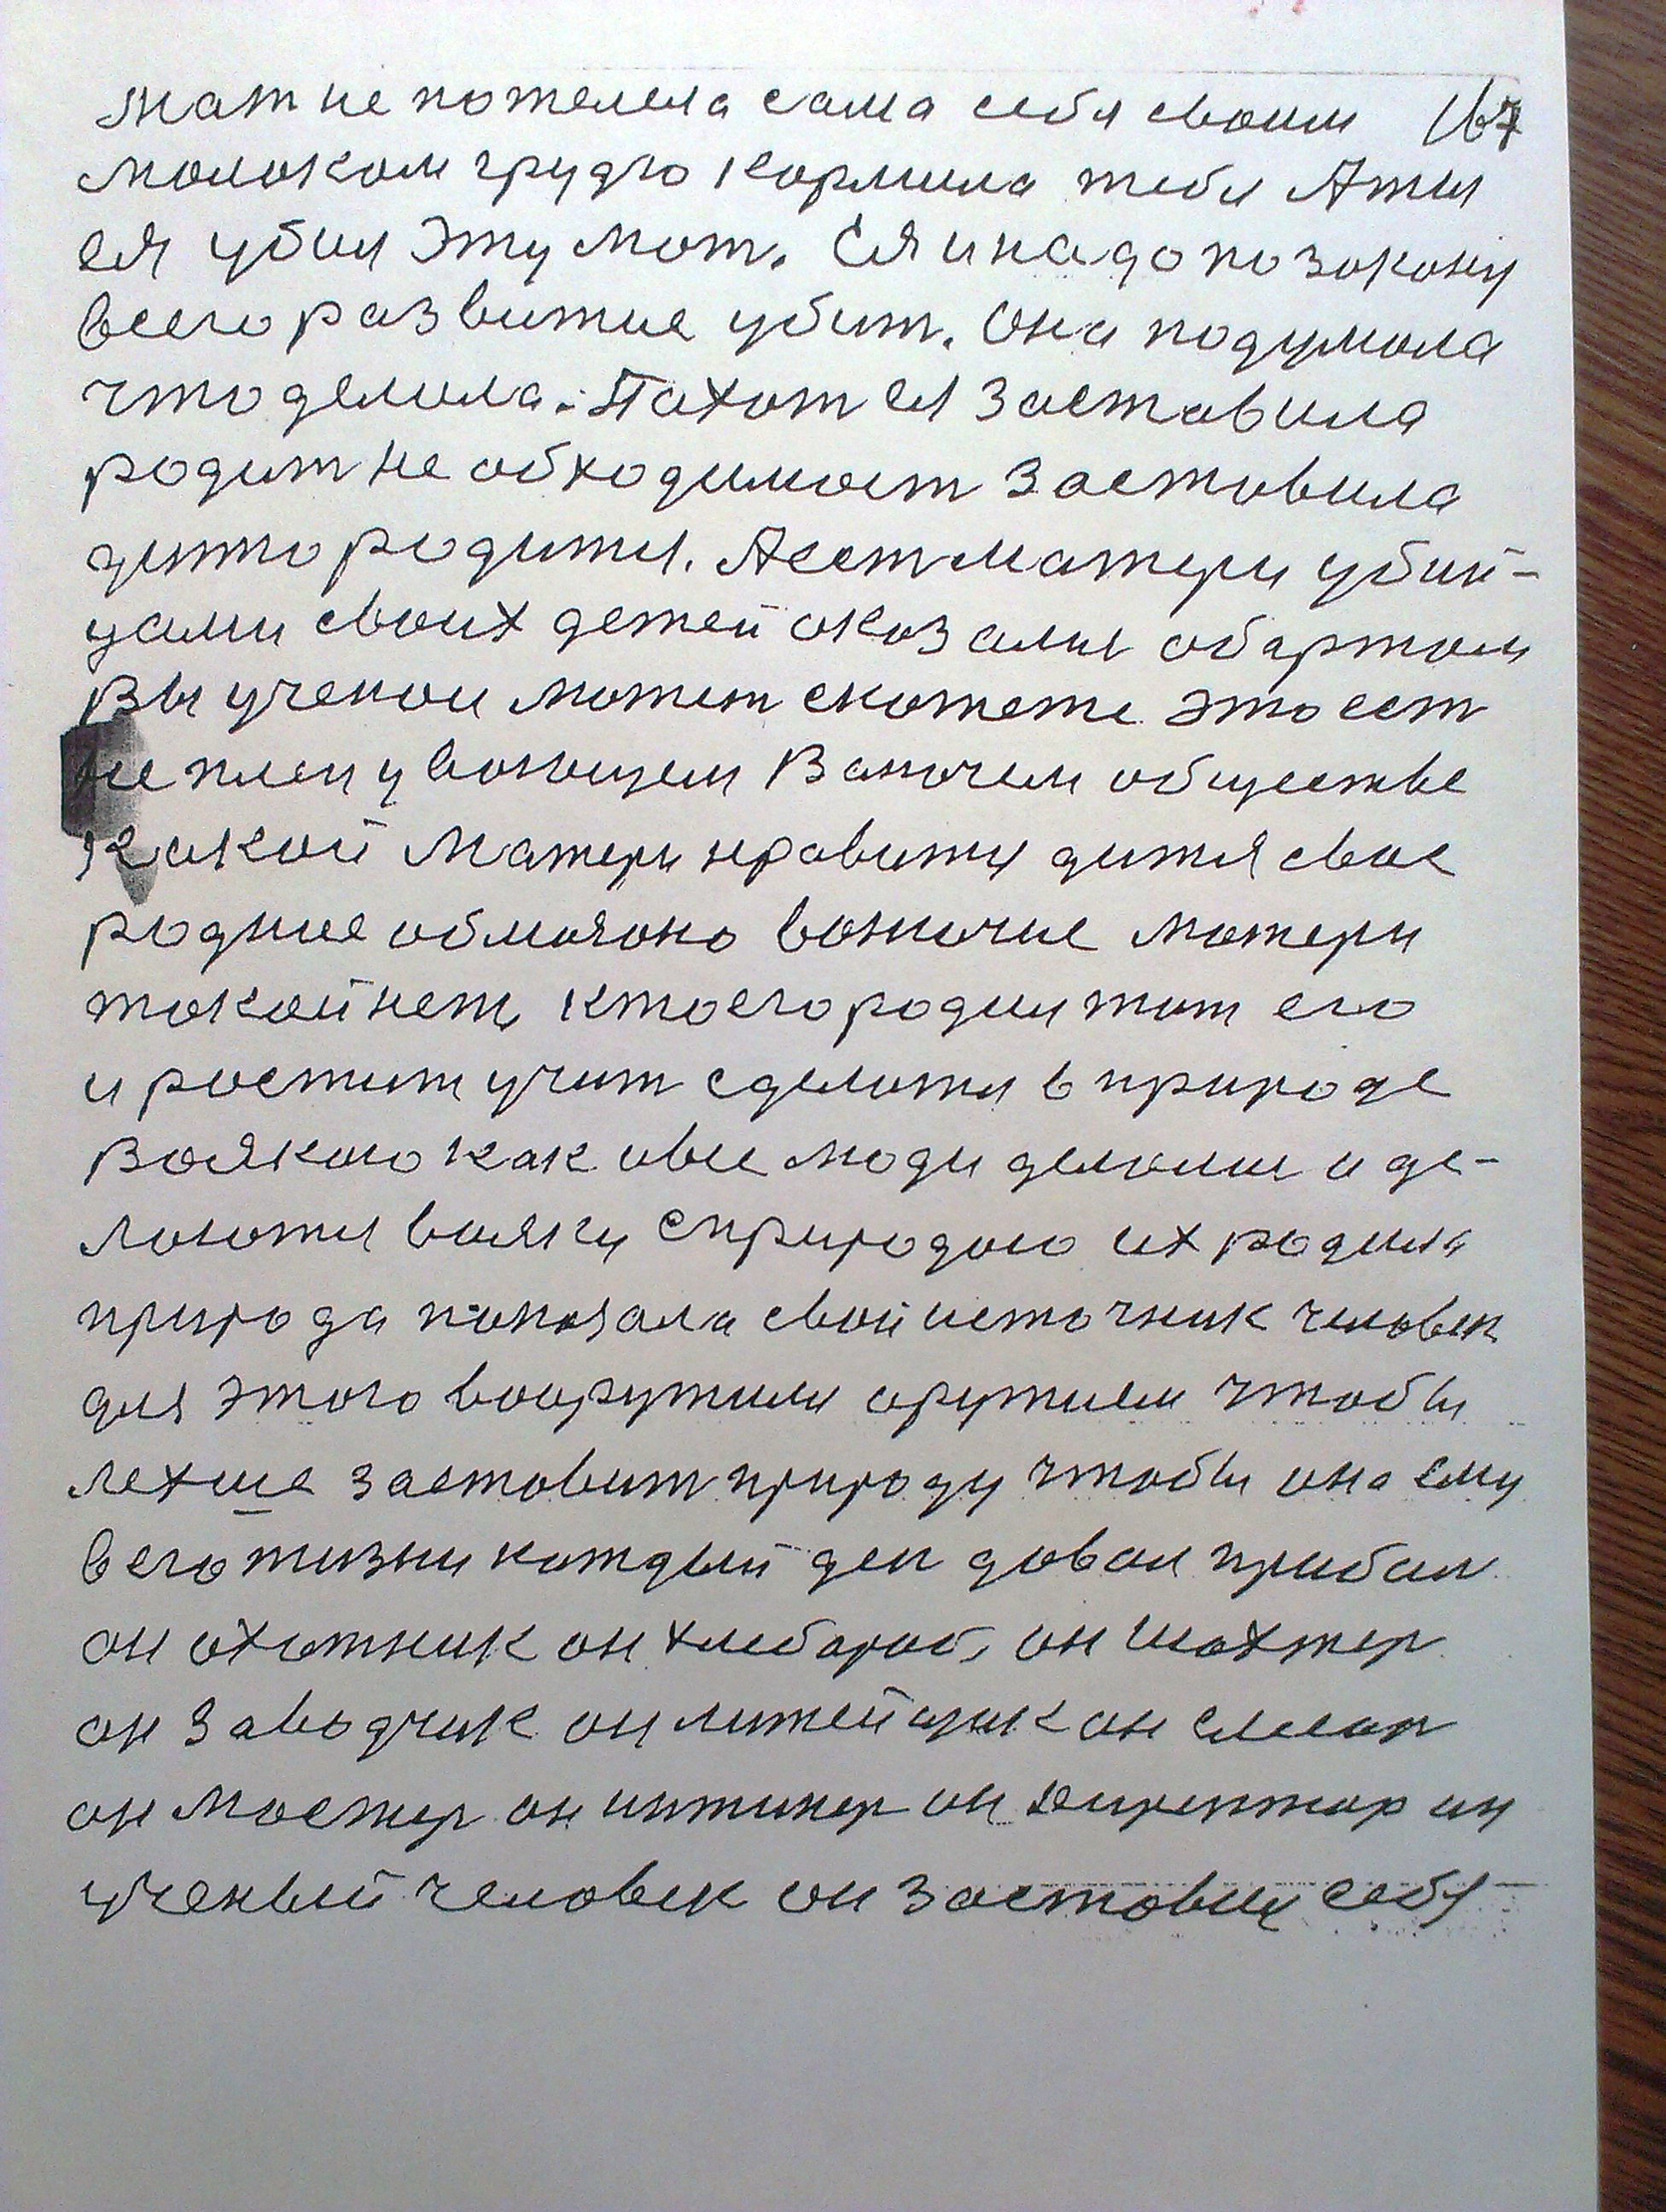 мат не пожелела сама себя своим 167
молоком грудю кормила тебя Аты
ея убил эту мат. Ея и надо по закону
всего развитие убит. Она подумала
что делила. Пахот ея заставила
родит не обходимост заставила
дитю родится. А ест матери убий-
цами своих детей оказалис обартом
Вы ученои может скажете это ест
не плен у вонющем Вангчем обществе
какой матери нравится дитя свое
родное обмарано вонючие матери
такой нет, кто его родил тот его
и ростит учит сделатся в природе
Воякою как и все люди делали и де-
лаются вояки с природою их родила
природа показала свой источник человек
для этого вооружили оружием чтобы
лехше заставит природу чтобы она ему
в его жизни каждый ден давал прибал
он охотник он хлебароб, он шахтер
он заводчик он литейщик он слесар
он мастер он инжинер он директор он
ученый человек он заставил себя